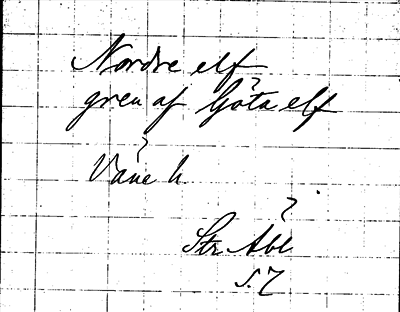 Nordre elf
gren af Göta elf
Våne h
Str Abl
S. 7